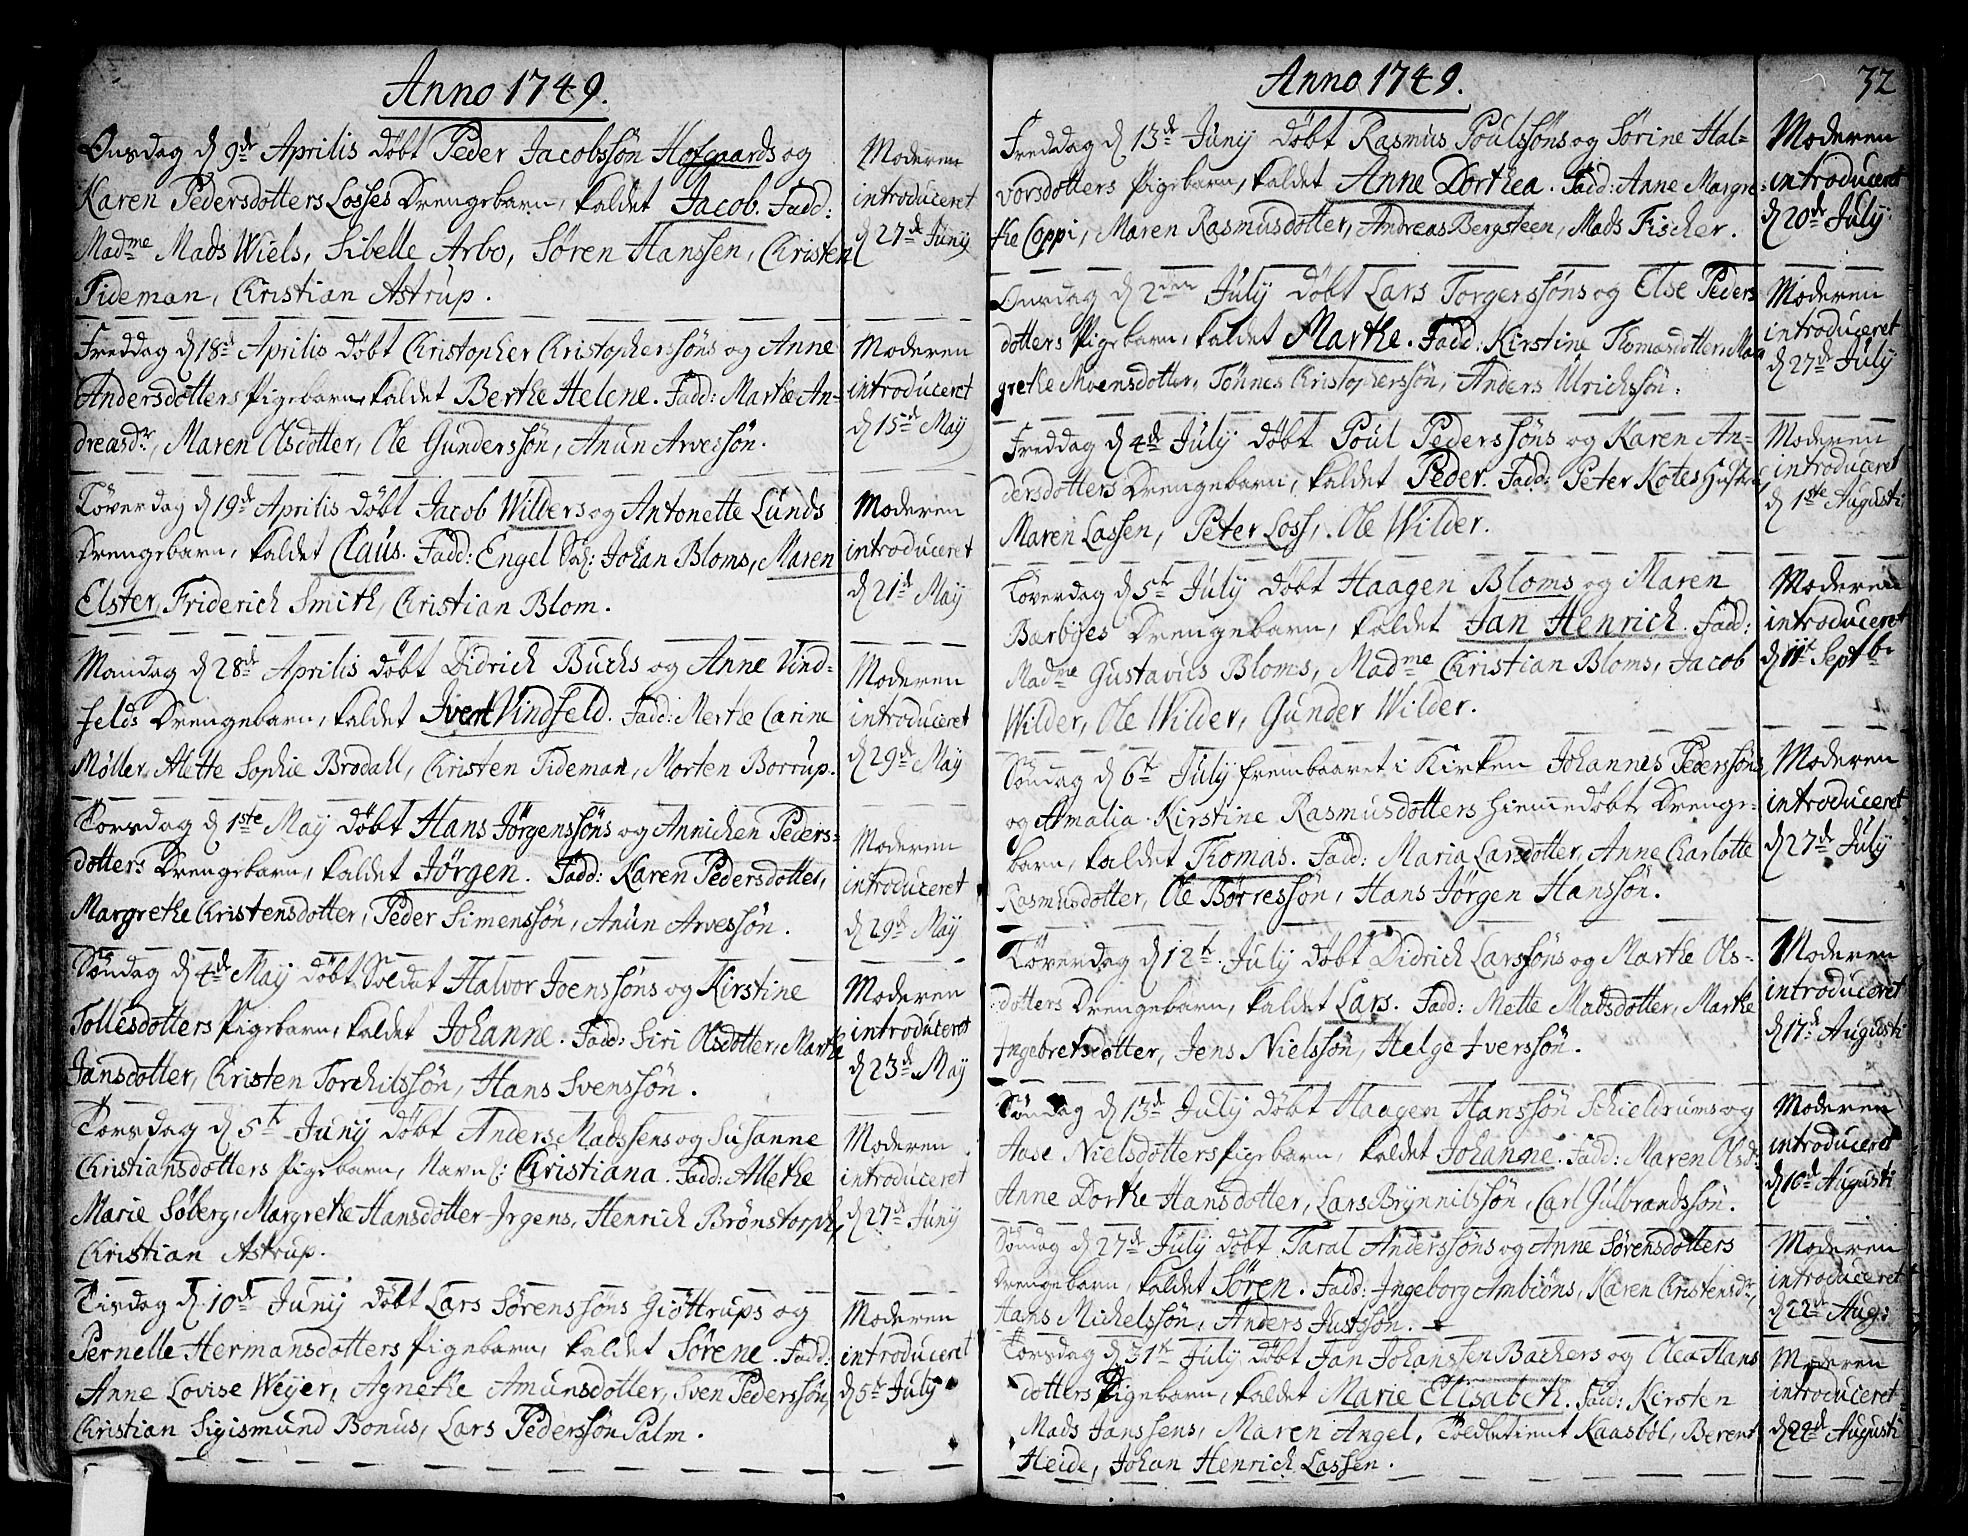 Anno 1749.
Onsdag d 9de Aprilis döbt Peder Jacobssön Hofgaards og
Karen Pedersdotters Losses Drengebarn, kaldet Jacob. Fadd:
Madme Mads Wiels, Sibelle Arbo, Sören Hansen, Christen
Tideman, Christian Astrup.
Moderen
introduceret
d 27de Junij
Freddag d 18de Aprilis döbt Christopher Christopherssöns og Anne
Andersdotters Pigebarn, kaldet Berthe Helene. Fadd: Marthe An-
dreasdr, Maren Olsdotter, Ole Gunderssön, Anun Arvessön.
Moderen
introduceret
d 15de May
Löverdag d 19de Aprilis döbt Jacob Wilders og Antonette Lunds
Drengebarn, kaldet Claus. Fadd: Engel Sal: Johan Bloms, Maren
Elster, Friderich Smith, Christian Blom.
Moderen
introduceret
d 21de May
Mandag d 28de Aprilis döbt Didrich Buchs og Anne Vind-
felds Drengebarn, kaldet Ivert Vindfeld. Fadd: Merthe Carine
Möller, Alette Sophie Brodall, Christen Tideman, Morten Borrup.
Moderen
introduceret
d 29de May
Torsdag d 1ste May döbt Hans Jörgenssöns og Annichen Peders-
dotters Drengebarn, kaldet Jörgen. Fadd: Karen Pedersdotter,
Margrethe Christensdotter, Peder Simenssön, Anun Arvessön.
Moderen
introduceret
d 29de May
Söndag d 4de May döbt Soldat Halvor Joenssöns og Kirstine
Tollesdotters Pigebarn, kaldet Johanne. Fadd: Siri Olsdotter, Marthe
Jansdotter, Christen Torchilssön, Hans Svenssön.
Moderen
introduceret
d 23de May
Torsdag d 5te Junij döbt Anders Madssens og Susanne
Christiansdotters Pigebarn, Navnl: Christiana. Fadd: Allethe
Marie Söberg, Margrethe Hansdotter Irgens, Henrich Brönstorph,
Christian Astrup.
Moderen
introduceret
d 27de Junij
Tisdag d 10de Junij döbt Lars Sörenssöns Giöttrups og
Pernelle Hermansdotters Pigebarn, kaldet Sörene. Fadd:
Anne Lovise Weyer, Agnethe Amunsdotter, Sven Pederssön,
Christian Sigismund Bonus, Lars Pederssön Palm.
Moderen
introduceret
d 5te July
Anno 1749.
32
Freddag d 13de Junij döbt Rasmus Poulssöns og Sörine Hal-
vorsdotters Pigebarn, kaldet Anne Dorthea. Fadd: Anne Margre-
the Coppi, Maren Rasmusdotter, Andreas Bergsteen, Mads Fischer.
Moderen
introduceret
d 20de July
Onsdag d 2den July döbt Lars Torgerssöns og Else Peders
dotters Pigebarn, kaldet Marthe. Fadd: Kirstine Thomasdotter, Mar
grethe Moensdotter, Tönnes Christopherssön, Anders Ulrichssön.
Moderen
introduceret
d 27de July
Freddag d 4de July döbt Poul Pederssöns og Karen An-
dersdotters Drengebarn, kaldet Peder. Fadd: Peter Kotes Hustro,
Maren Lassen, Peter Loss, Ole Wilder.
Moderen
introduceret
d 1ste Augusti
Löverdag d 5te July döbt Haagen Bloms og Maren
Barbÿes Drengebarn, kaldet Jan Henrich. Fadd:
Madme Gustavius Bloms, Madme Christian Bloms, Jacob
Wilder, Ole Wilder, Gunder Wilder.
Moderen
introduceret
d 11te Septb.
Söndag d 6te July frembaaret i Kirken Johannes Pederssöns
og Amalia Kirstine Rasmusdotters Hiemmedöbt Drenge-
barn, kaldet Thomas. Fadd: Maria Larsdotter, Anne Charlotte
Rasmusdotter, Ole Börressön, Hans Jörgen Hanssön.
Moderen
introduceret
d 27de July
Löverdag d 12te July döbt Didrich Larssöns og Marthe Ols-
dotters Drengebarn, kaldet Lars. Fadd: Mette Madsdotter, Marthe
Ingebretsdotter, Jens Nielssön, Helge Iverssön.
Moderen
introduceret
d 17de Augusti
Söndag d 13de July döbt Haagen Hanssön Schieldrums og
Aase Nielsdotters Pigebarn, kaldet Johanne. Fadd: Maren Olsdr
Anne Dorthe Hansdotter, Lars Brynnilssön, Carl Gulbrandssön.
Moderen
introduceret
d 10de Augusti
Söndag d 27de July döbt Taral Anderssöns og Anne Sörensdotters
Drengebarn, kaldet Sören. Fadd: Ingeborg Ambiöns, Karen Christensdr,
Hans Michelssön, Anders Justssön.
Moderen
introduceret
d 22de Aug:
Torsdag d 31te July döbt Jan Johanssen Bachers og Olea Hans
dotters Pigebarn, kaldet Marie Elisabeth. Fadd: Kirsten
Mads Janssens, Maren Angel, Toldbetient Kaasböl, Berent
Heide, Johan Henrich Lassen.
Moderen
introduceret
d 22de Augusti